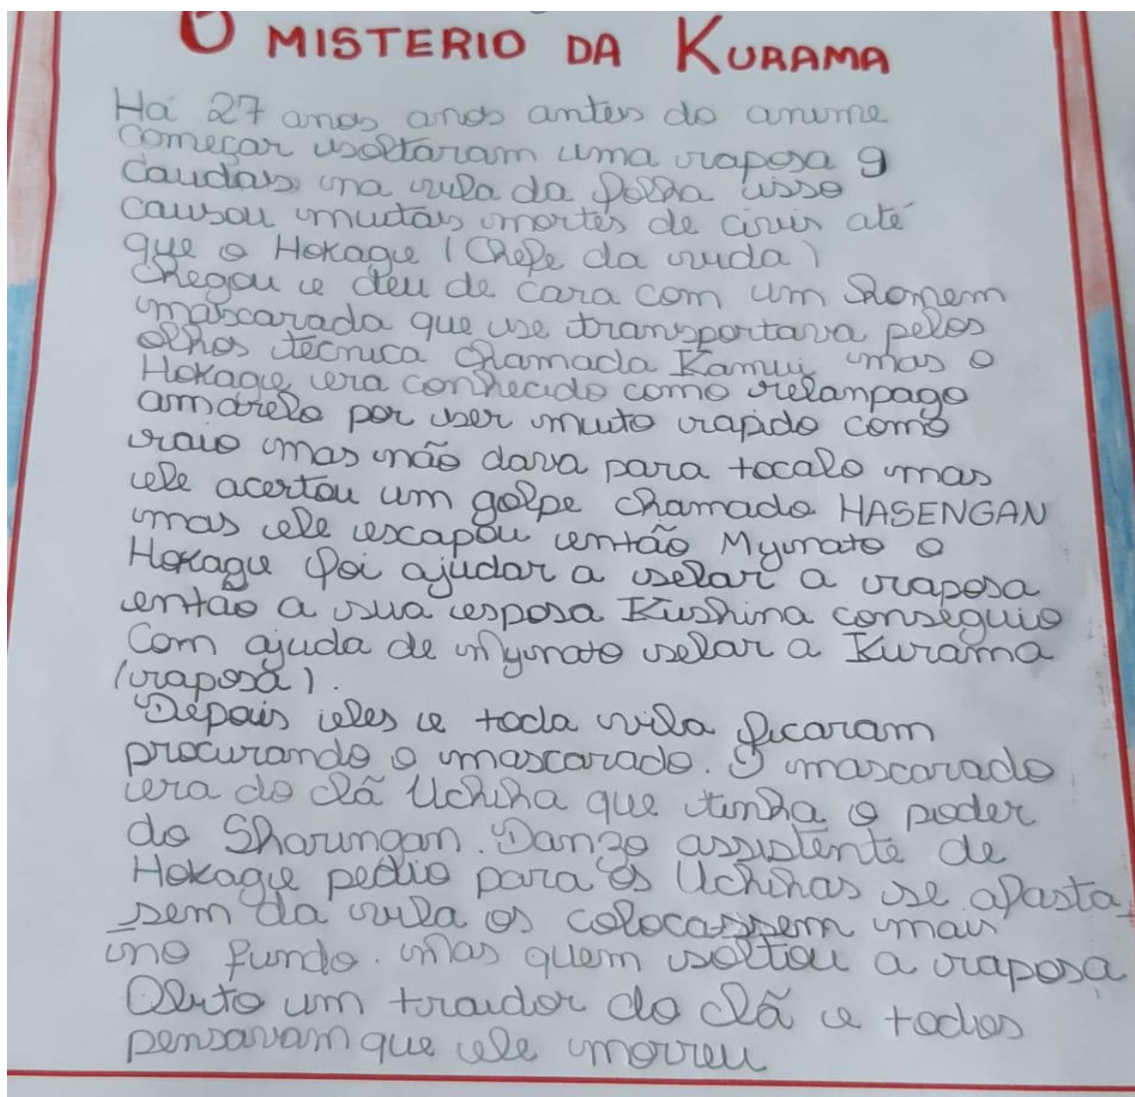 O MISTERIO DA KURAMA
Há 27 anos anos antes do anime
começar soltaram uma raposa 9
caudas na vila da folha isso
causou muitas mortes de civis até
que o Hokage (Chefe da vida)
chegou e deu de cara com um homem
mascarada que se transportava pelos
olhos técnica chamada Kamui mas o
Hokage era conhecido como relampago
amarelo por ser muito rapido como
raio mas não dava para tocalo mas
ele acertou um golpe chamado HASENGAN
mas ele escapou então Mynato o
Hokage foi ajudar a selar a raposa
então a sua esposa Kushina conseguio
com ajuda de Mynato selar a Kurama
(raposa).
Depois eles e toda vila ficaram
procurando o mascarado. O mascarado
era do clã Uchiha que tinha o poder
do Sharingan. Danzo assistente de
Hokage pedio para os Uchihas se afasta
sem da vila os colocassem mais
no fundo. mas quem soltou a raposa
Obito um traidor do clã e todos
pensavam que ele morreu